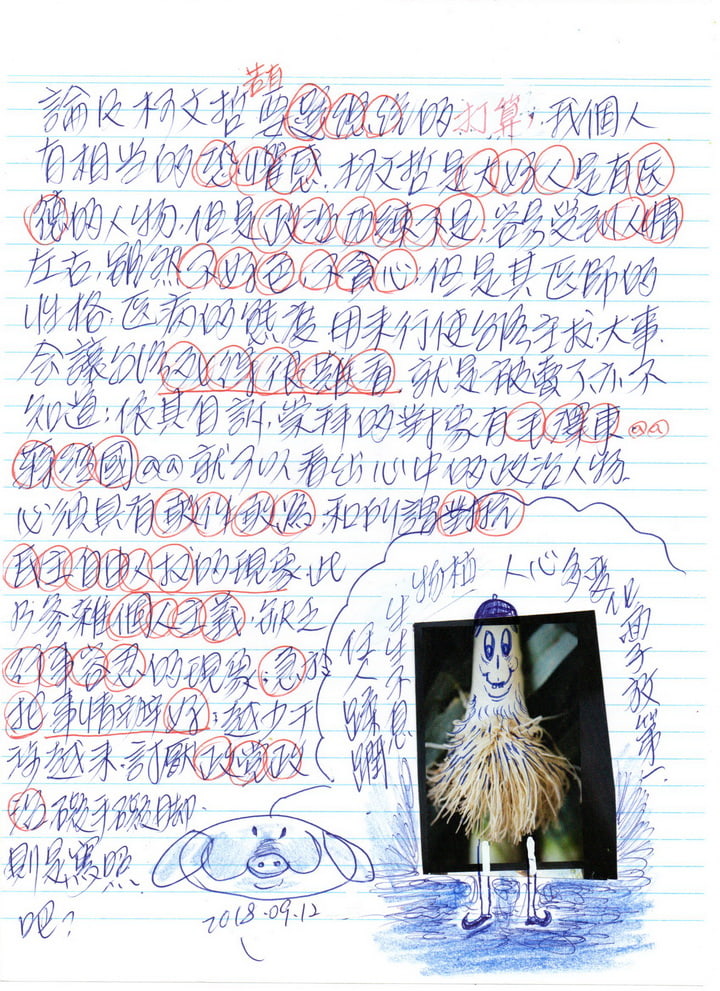 論及柯文哲要選總統的打算；我個人
有相当的恐懼感．柯文哲是大好人是有医
德的人物．但是政治历練不足；容易受到人情
左右．雖然不好色．不貪心．但是其医師的
性格．医病的態度用来行使台湾主权．大事．
会讓台湾 很難看 就是被賣了亦不
知道；依其自訴．崇拜的對象有毛澤東@@
蔣經國@@就可以看出心中的政治人物．
必須具有敢作敢為．和所謂對抗
民主自由人权的現象．此
乃参雜個人主義．缺乏
行事容忍的現象．急於
把事情辦好．越少干
涉越来．討厭政黨政
治碍手碍脚．
則是寫照
吧？
2018.09.12
植物
生生不息
任人踩踏
人心多變化
面子放第一